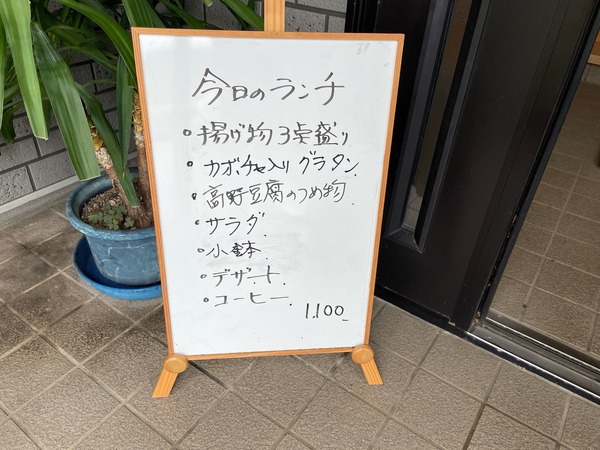 今日のランチ
・揚げ物3点盛り
・カボチャ入りグラタン
・高野豆腐のつめ物
・サラダ
・小鉢
・デザート
・コーヒー
1.100_